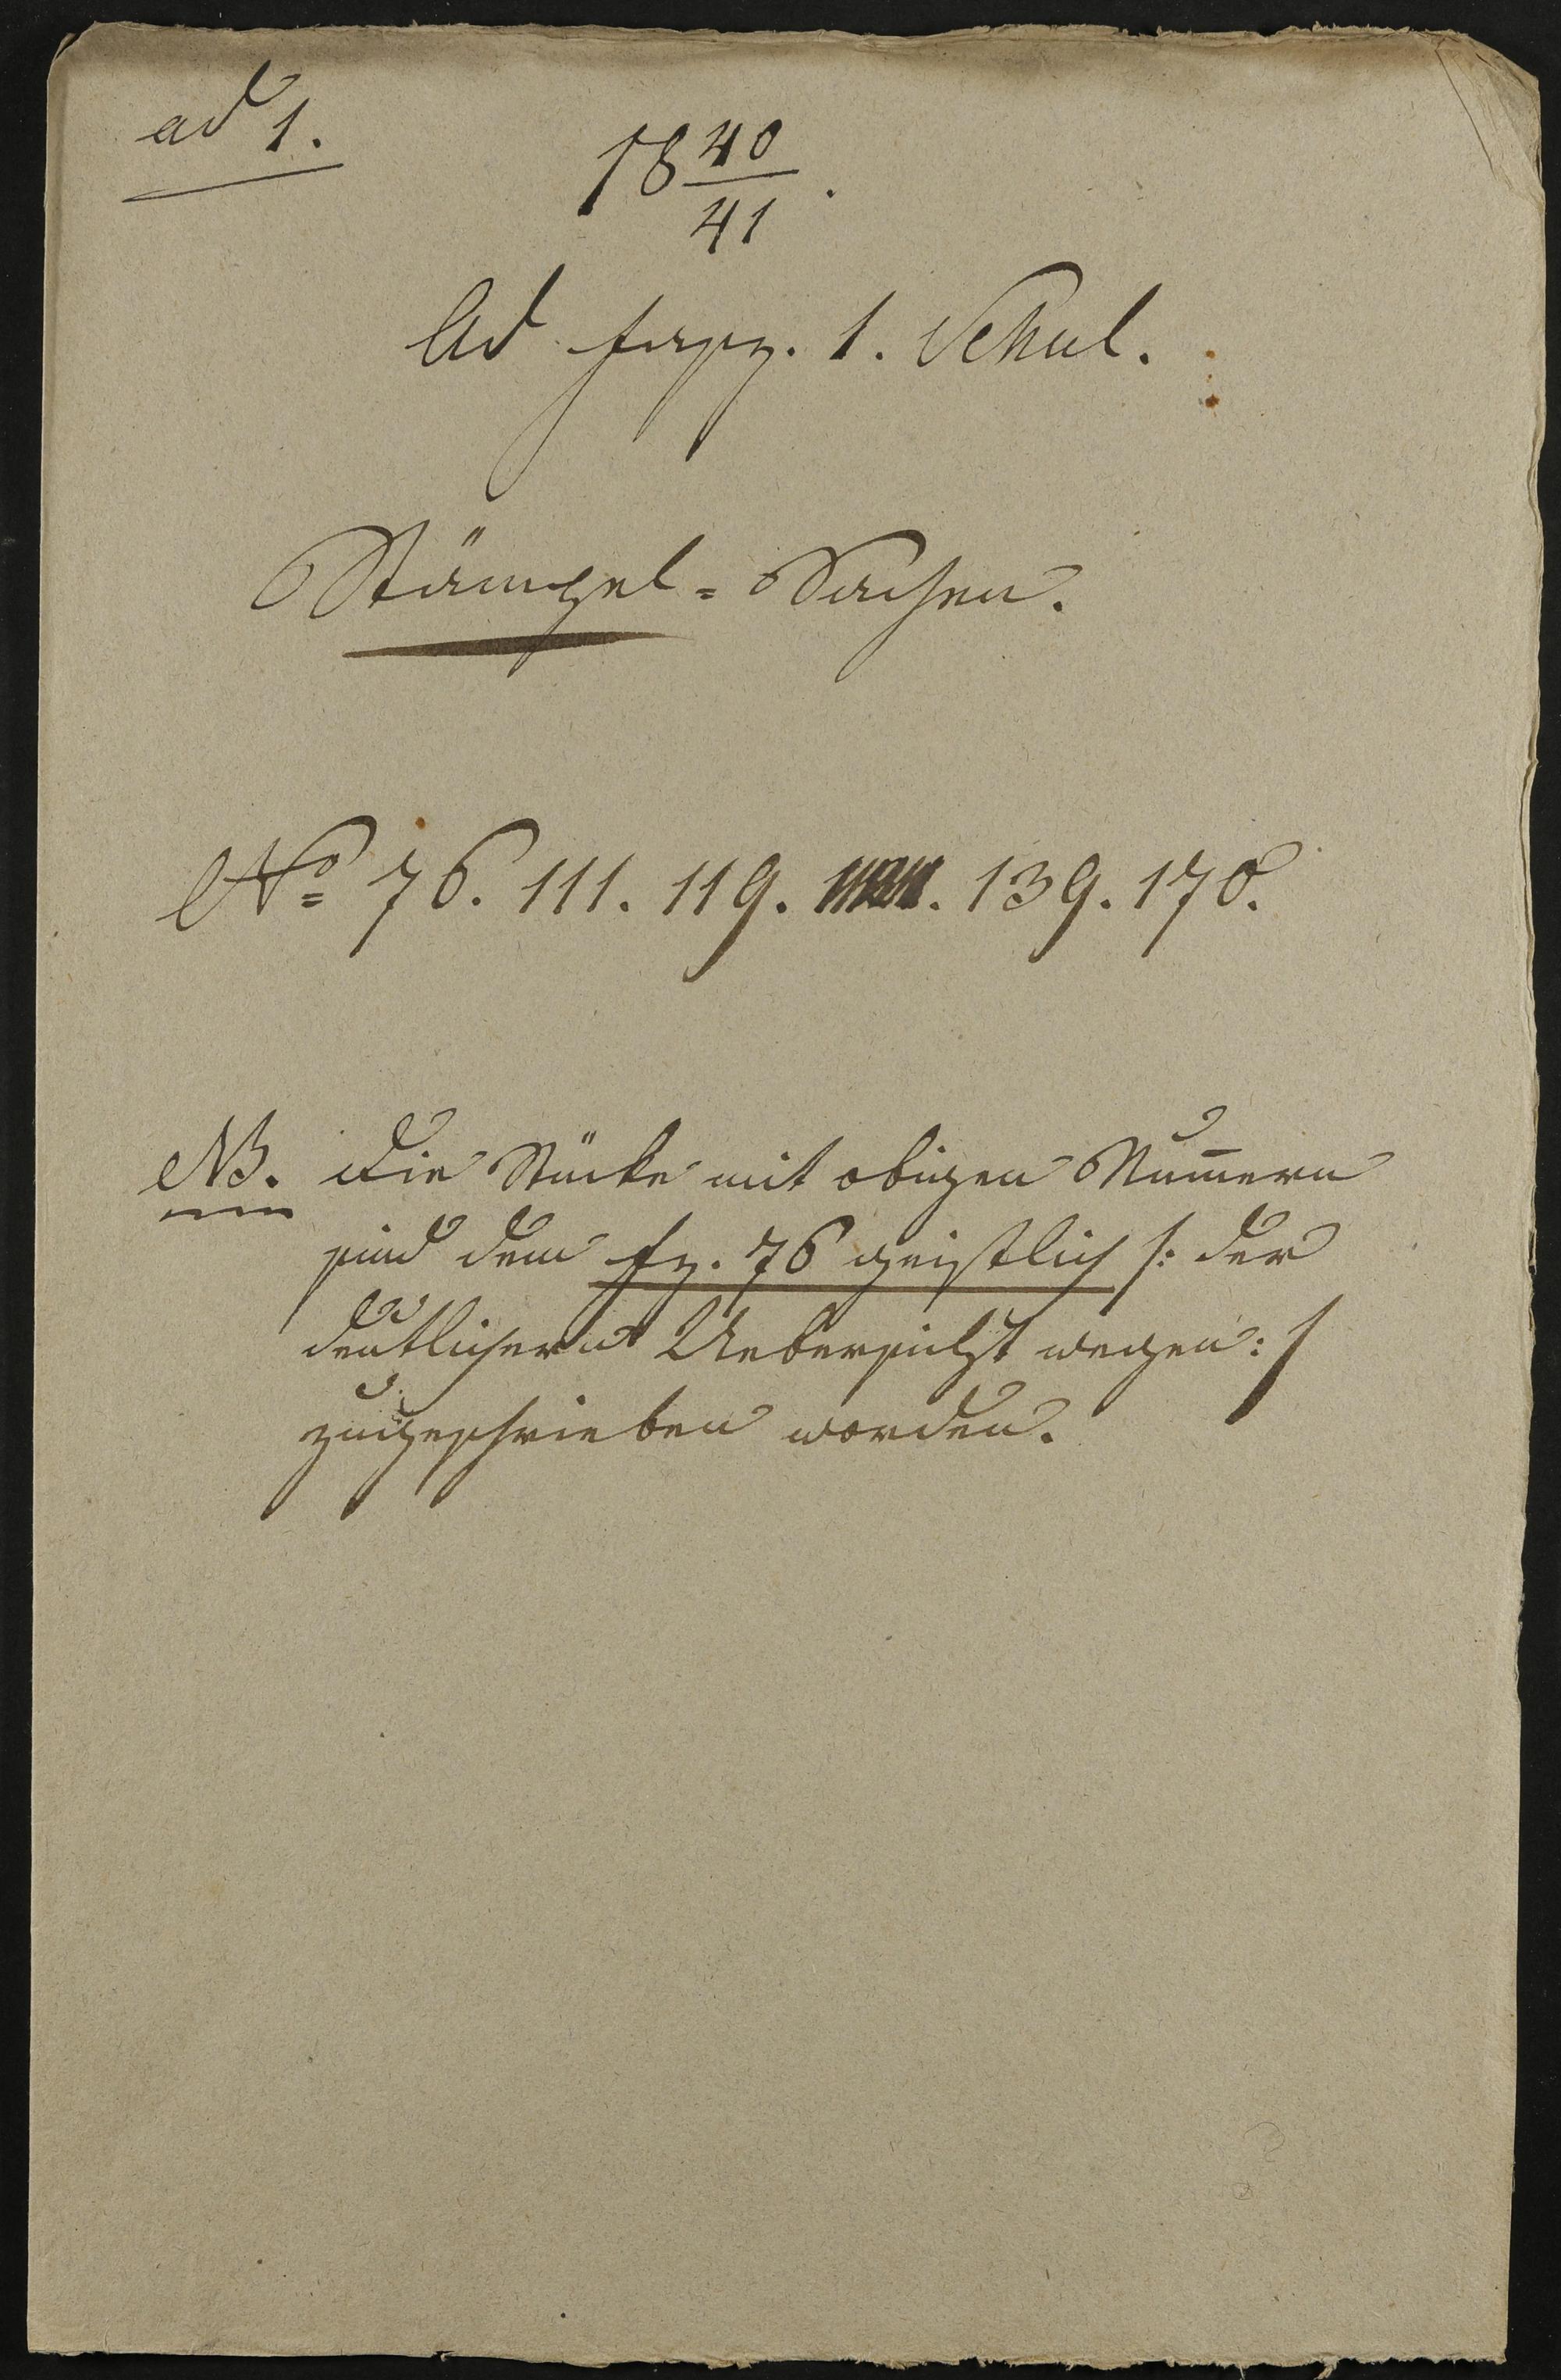 ad 1.
18 40/41.
Ad fasz. 1. Schul.
Stämpel=Sachen.
No 76. 111. 119. 139. 170.
NB. Die Stücke mit obigen Num̅ern
sind dem fz. 76 geistlich /: der
deutlichern Uebersicht wegen :/
zugeschrieben worden.